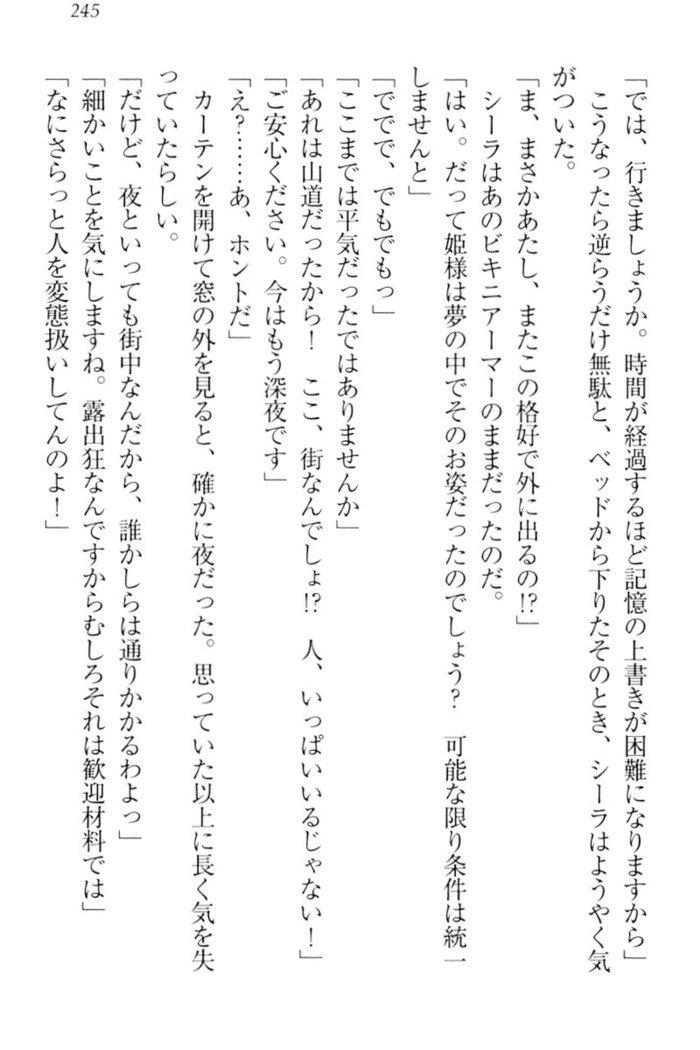 245
「では、行きましょうか。時間が経過するほど記憶の上書きが困難になりますから」
　こうなったら逆らうだけ無駄と、ベッドから下りたそのとき、シーラはようやく気
がついた。
「ま、まさかあたし、またこの格好で外に出るの!?」
　シーラはあのビキニアーマーのままだったのだ。
「はい。だって姫様は夢の中でそのお姿だったのでしょう？　可能な限り条件は統一
しませんと」
「ででで、でもでもっ」
「ここまでは平気だったではありませんか」
「あれは山道だったから！　ここ、街なんでしょ!?　人、いっぱいいるじゃない！」
「ご安心ください。今はもう深夜です」
「え？……あ、ホントだ」
　カーテンを開けて窓の外を見ると、確かに夜だった。思っていた以上に長く気を失
っていたらしい。
「だけど、夜といっても街中なんだから、誰かしらは通りかかるわよっ」
「細かいことを気にしますね。露出狂なんですからむしろそれは歓迎材料では」
「なにさらっと人を変態扱いしてんのよ！」